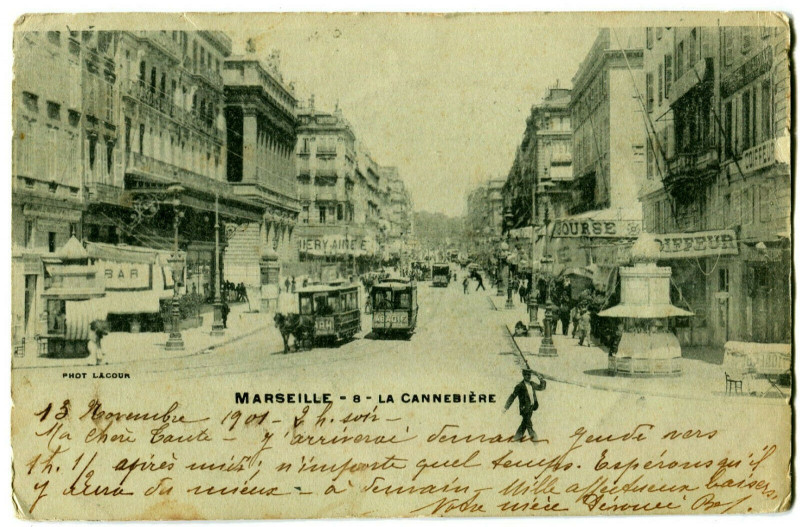 BAR
BOURSE
COIFFEUR
COIFFEUR
PHOT LACOUR
MARSEILLE - 8 - LA CANNEBIÈRE
13 Novembre 1901 - 2 h. soir -
Ma chère Tante - J'arriverai demain jeudi vers
1h. 1/2 après midi; n'importe quel temps. Espérons qu'il
y aura du mieux - à demain - Mille affectueux baisers
Votre nièce